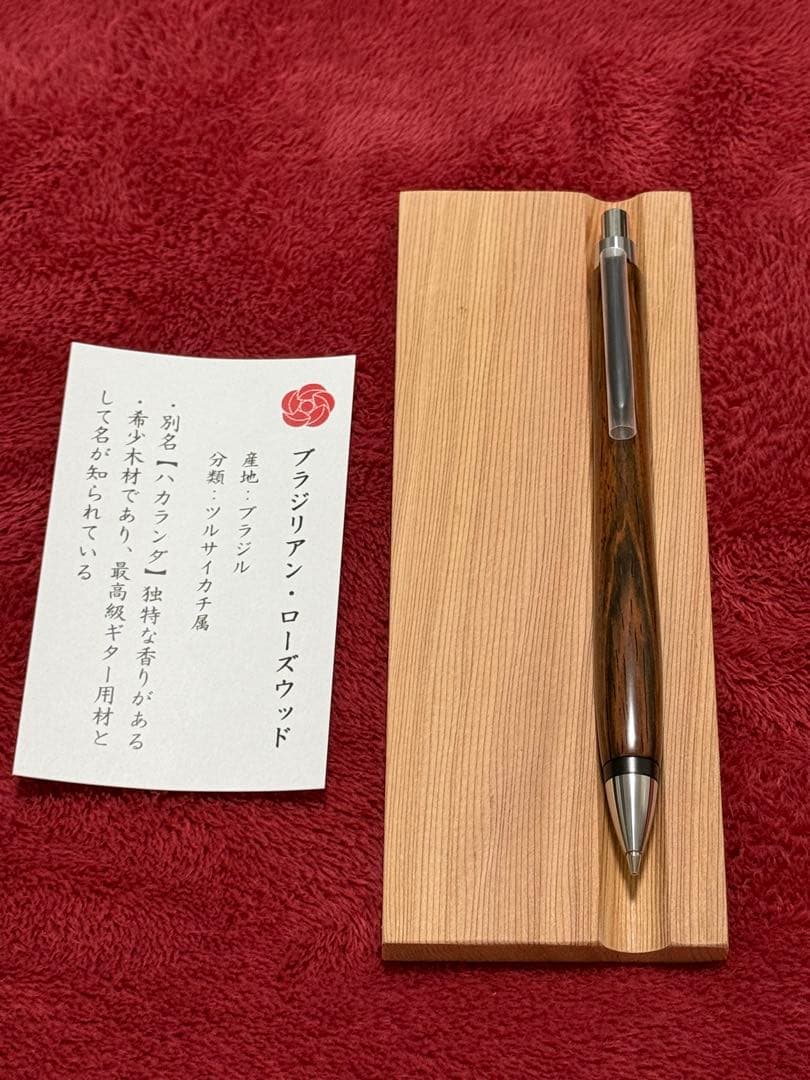 ブラジリアン・ローズウッド
産地：ブラジル
分類：ツルサイカチ属
・別名【ハカランダ】独特な香りがある
・希少木材であり、最高級ギター用材と
して名が知られている